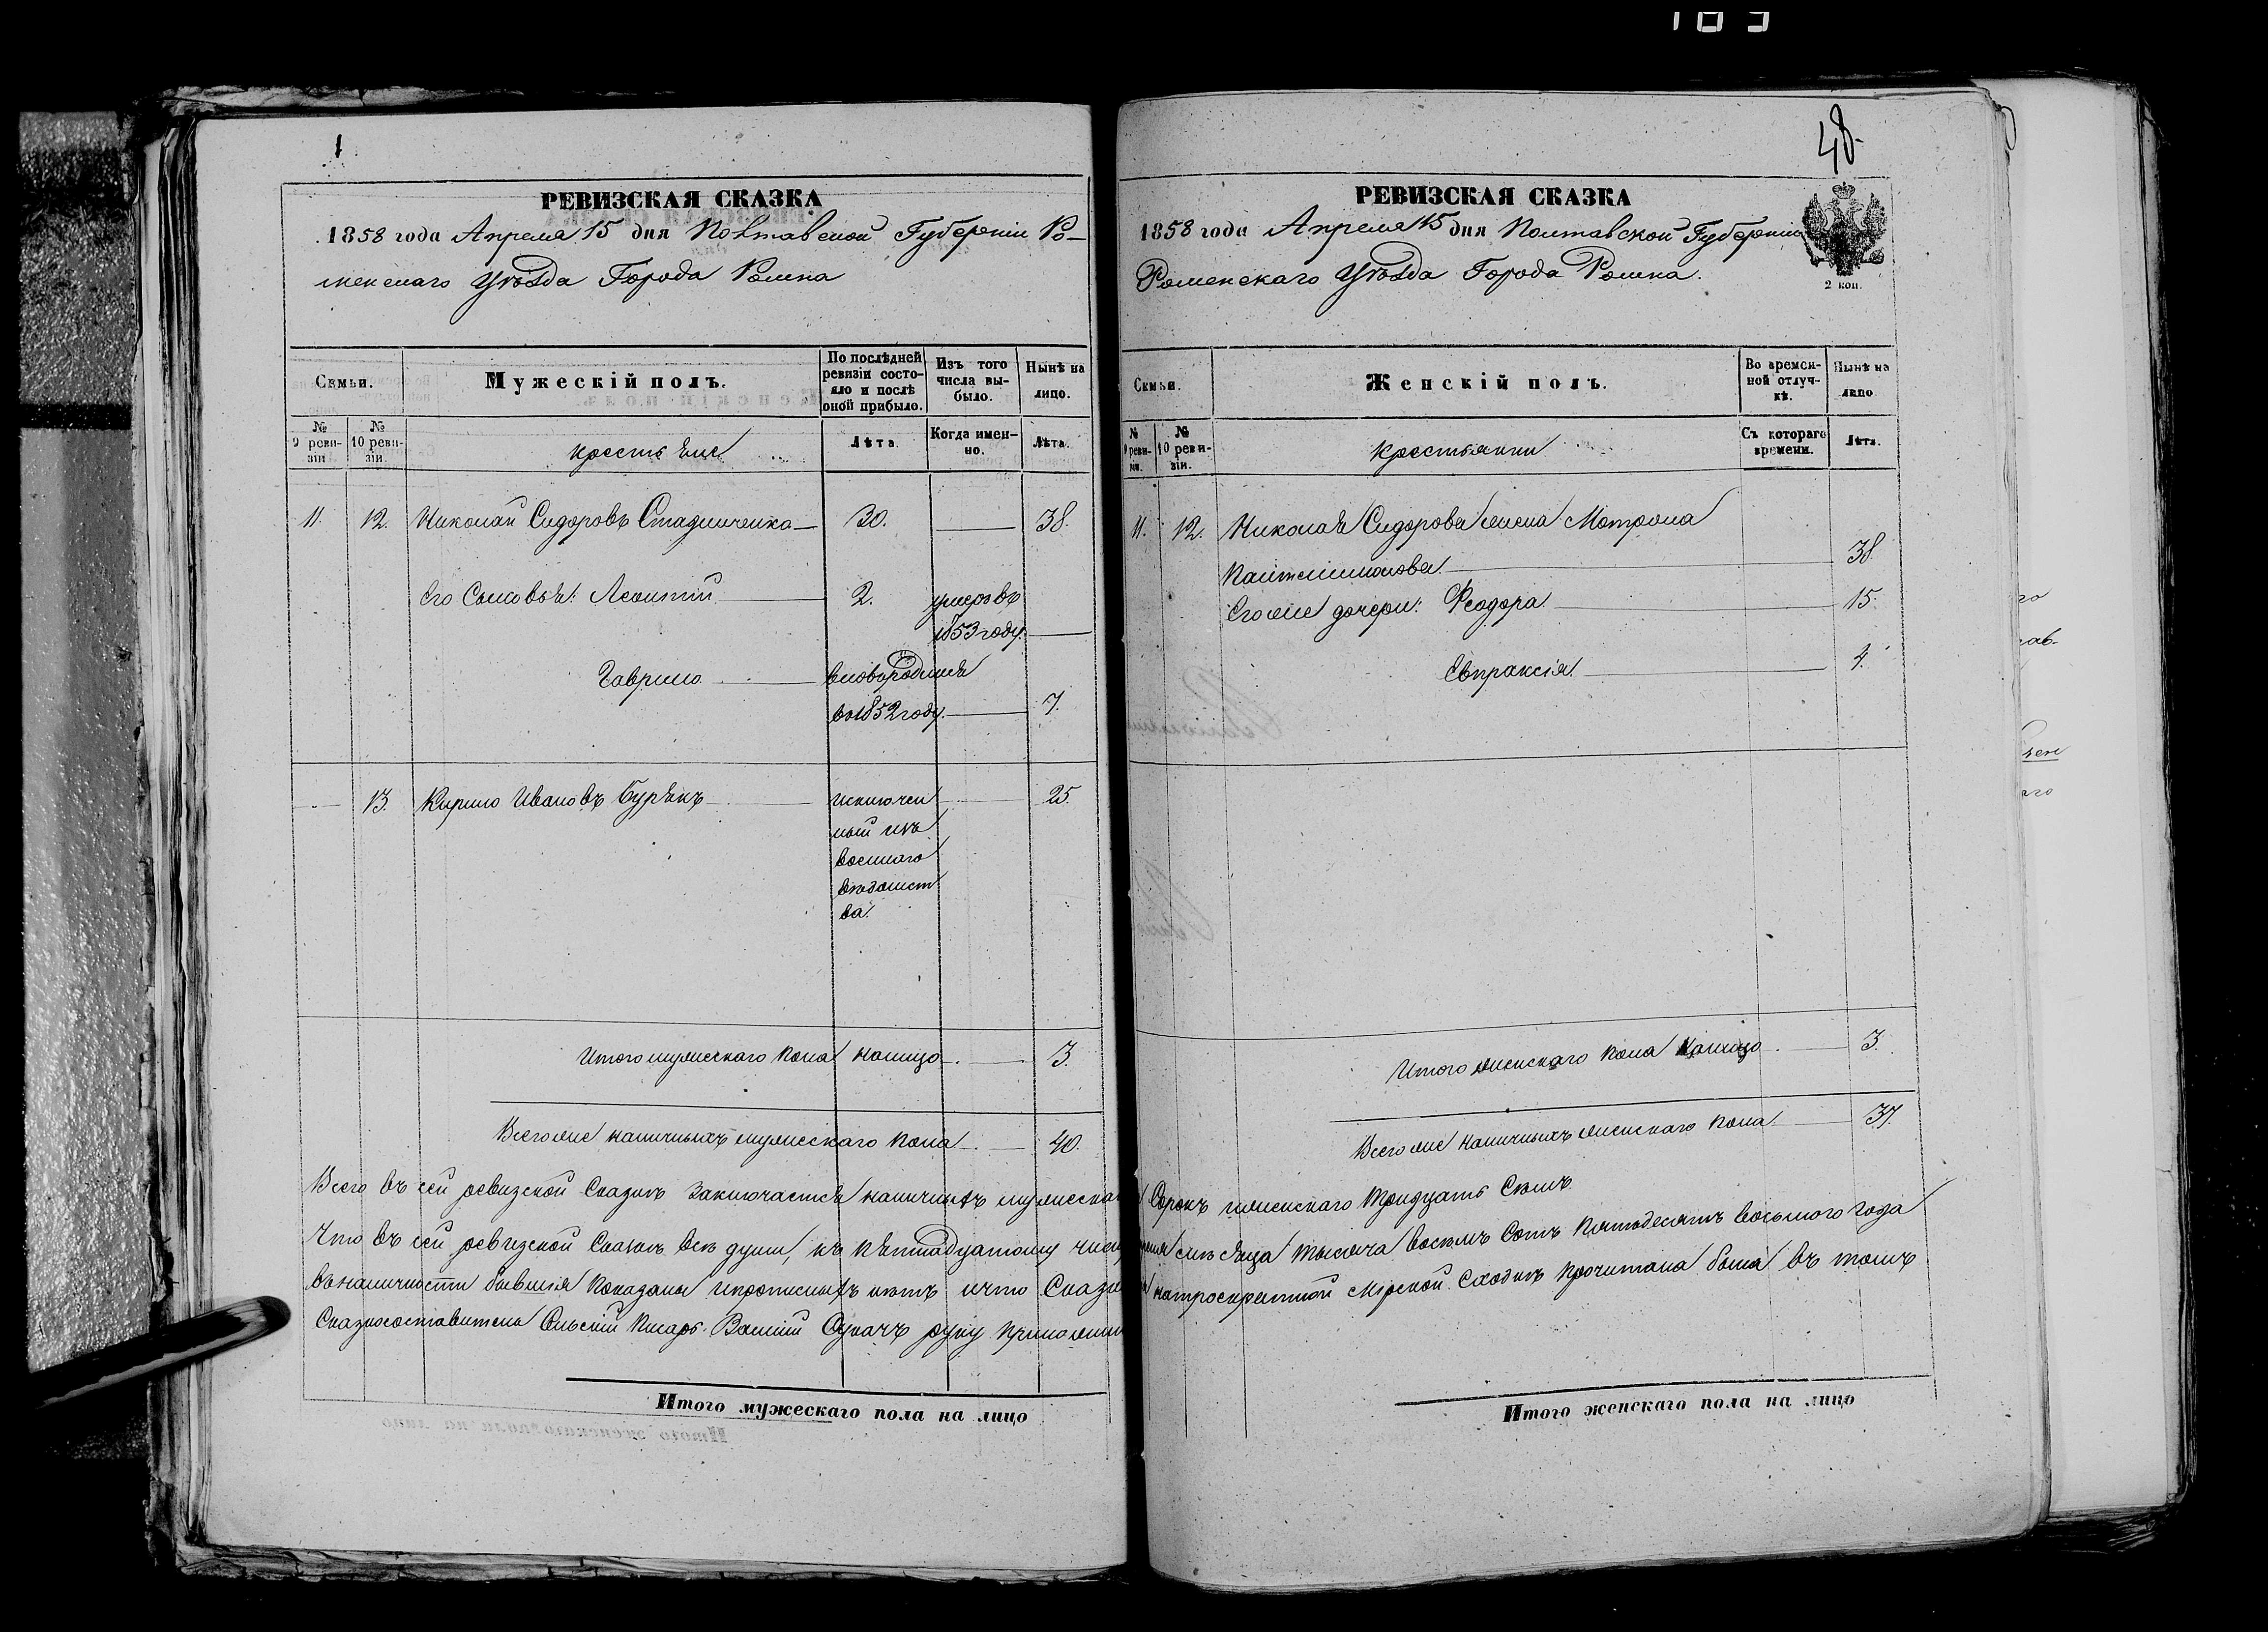 183
1
РЕВИЗСКАЯ СКАЗКА
1858 года Апреля 15 дня Полтавской Губерніи Ро-
менскаго Уѣзда Города Ромна
Семьи.
Мужескій полъ.
По послѣдней ревизіи состо-яло и послѣ оной прибыло.
Изъ того числа вы-было.
Нынѣ на лицо.
№ 9 реви-зіи
№ 10 реви-зіи.
крестьяне
Лѣта.
Когда имен-но.
Лѣта.
11. 12. Николай Сидоровъ Стадниченко 30. 38.
Его Сыновья: Леонтій 2. умеръ въ
1853 году.
Гаврило вновьродился
въ 1852 году. 7.
13. Кирило Ивановъ Бурякъ исключен 25.
ный изъ
военнаго
вѣдомст
ва.
Итого мужескаго пола налицо 3.
Всего же наличныхъ мужескаго пола 40.
Всего въ сей ревизской Сказкѣ заключается наличныхъ мужеска
Что въ сей ревизской Сказкѣ всѣ души, къ пятнадцатому числу
въ наличности бывшія показаны и прописныхъ нѣтъ и что Сказка
Сказкосоставитель Сельскій Писарь Василій Сукачъ руку приложилъ
Итого мужескаго пола на лицо
48.
РЕВИЗСКАЯ СКАЗКА
1858 года Апреля 15 дня Полтавской Губерніи
Роменскаго Уѣзда Города Ромна.
2 коп.
Семьи.
Женскій полъ.
Во времен-ной отлуч-кѣ.
Нынѣ на лицо
№ 9 реви-зіи.
№ 10 реви-зіи.
крестьянки
Съ котораго времени.
Лѣта.
11. 12. Николая Сидорова жена Мотрона
Пантелимонова 38.
Его же дочери: Феодора 15.
Евпраксія 4.
Итого женскаго пола налицо 3.
Всего же наличныхъ женскаго пола 37.
Сорокъ и женскаго Тридцать Семъ
мѣсяца тысяча восемъ Сотъ пятьдесятъ восьмого года
на троекратной Мірской Сходкѣ прочитана была въ томъ
Итого женскаго пола на лицо